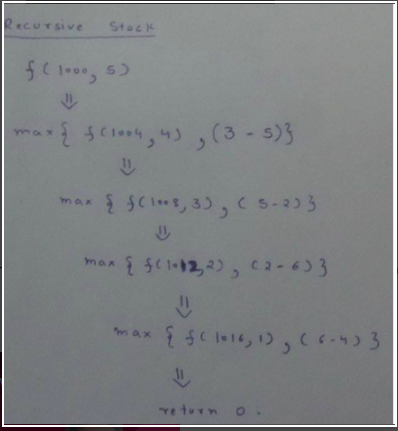 Recursive Stack
f(1000, 5)
⇓
max{ f(1004, 4) , (3 - 5)}
⇓
max { f(1008, 3) , ( 5-2)}
⇓
max { f(1012,2) , (2-6)}
⇓
max { f(1016,1) , (6-4)}
⇓
return 0.